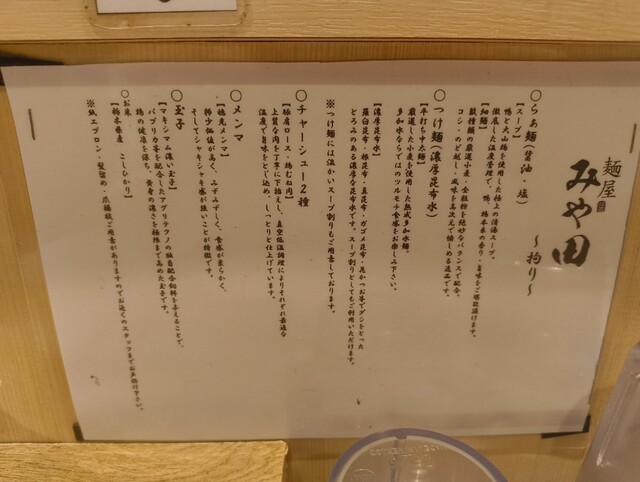 麺屋
みや田
～拘り～
○らぁ麺(醤油・塩)
【スープ】
鴨と大山鶏を使用した極上の清湯スープ。
徹底した温度管理で、鴨、鶏本来の香り・旨味をご堪能頂けます。
【細麺】
数種類の厳選小麦・全粒粉を絶妙なバランスで配合。
コシ・のど越し・風味を高次元で愉しめる逸品です。
○つけ麺(濃厚昆布水)
【平打ち中太麺】
厳選した小麦を使用した熟成多加水麺。
多加水ならではのツルモチ食感をお楽しみ下さい。
【濃厚昆布水】
羅臼昆布・根昆布・真昆布・ガゴメ昆布・花かつお等でダシをとった
とろみのある濃厚な昆布水です。スープ割りとしてもご利用いただけます。
※つけ麺には温かいスープ割りもご用意しております。
○チャーシュー2種
【豚肩ロース・鶏むね肉】
上質な肉を丁寧に下拵えし、真空低温調理によりそれぞれ最適な
温度で旨味をとじ込め、しっとりと仕上げています。
○メンマ
【穂先メンマ】
稀少価値が高く、みずみずしく、食感が柔らかく、
そしてシャキシャキ感が強いことが特徴です。
○玉子
【マキシマム濃い玉子】
パプリカ等を配合したアグリテクノの独自配合飼料を与えることで、
鶏の健康を保ち、黄身の濃さを極限まで高めた玉子です。
○お米
【栃木県産 こしひかり】
※紙エプロン・髪留め・爪楊枝ご用意がありますのでお近くのスタッフまでお声掛け下さい。